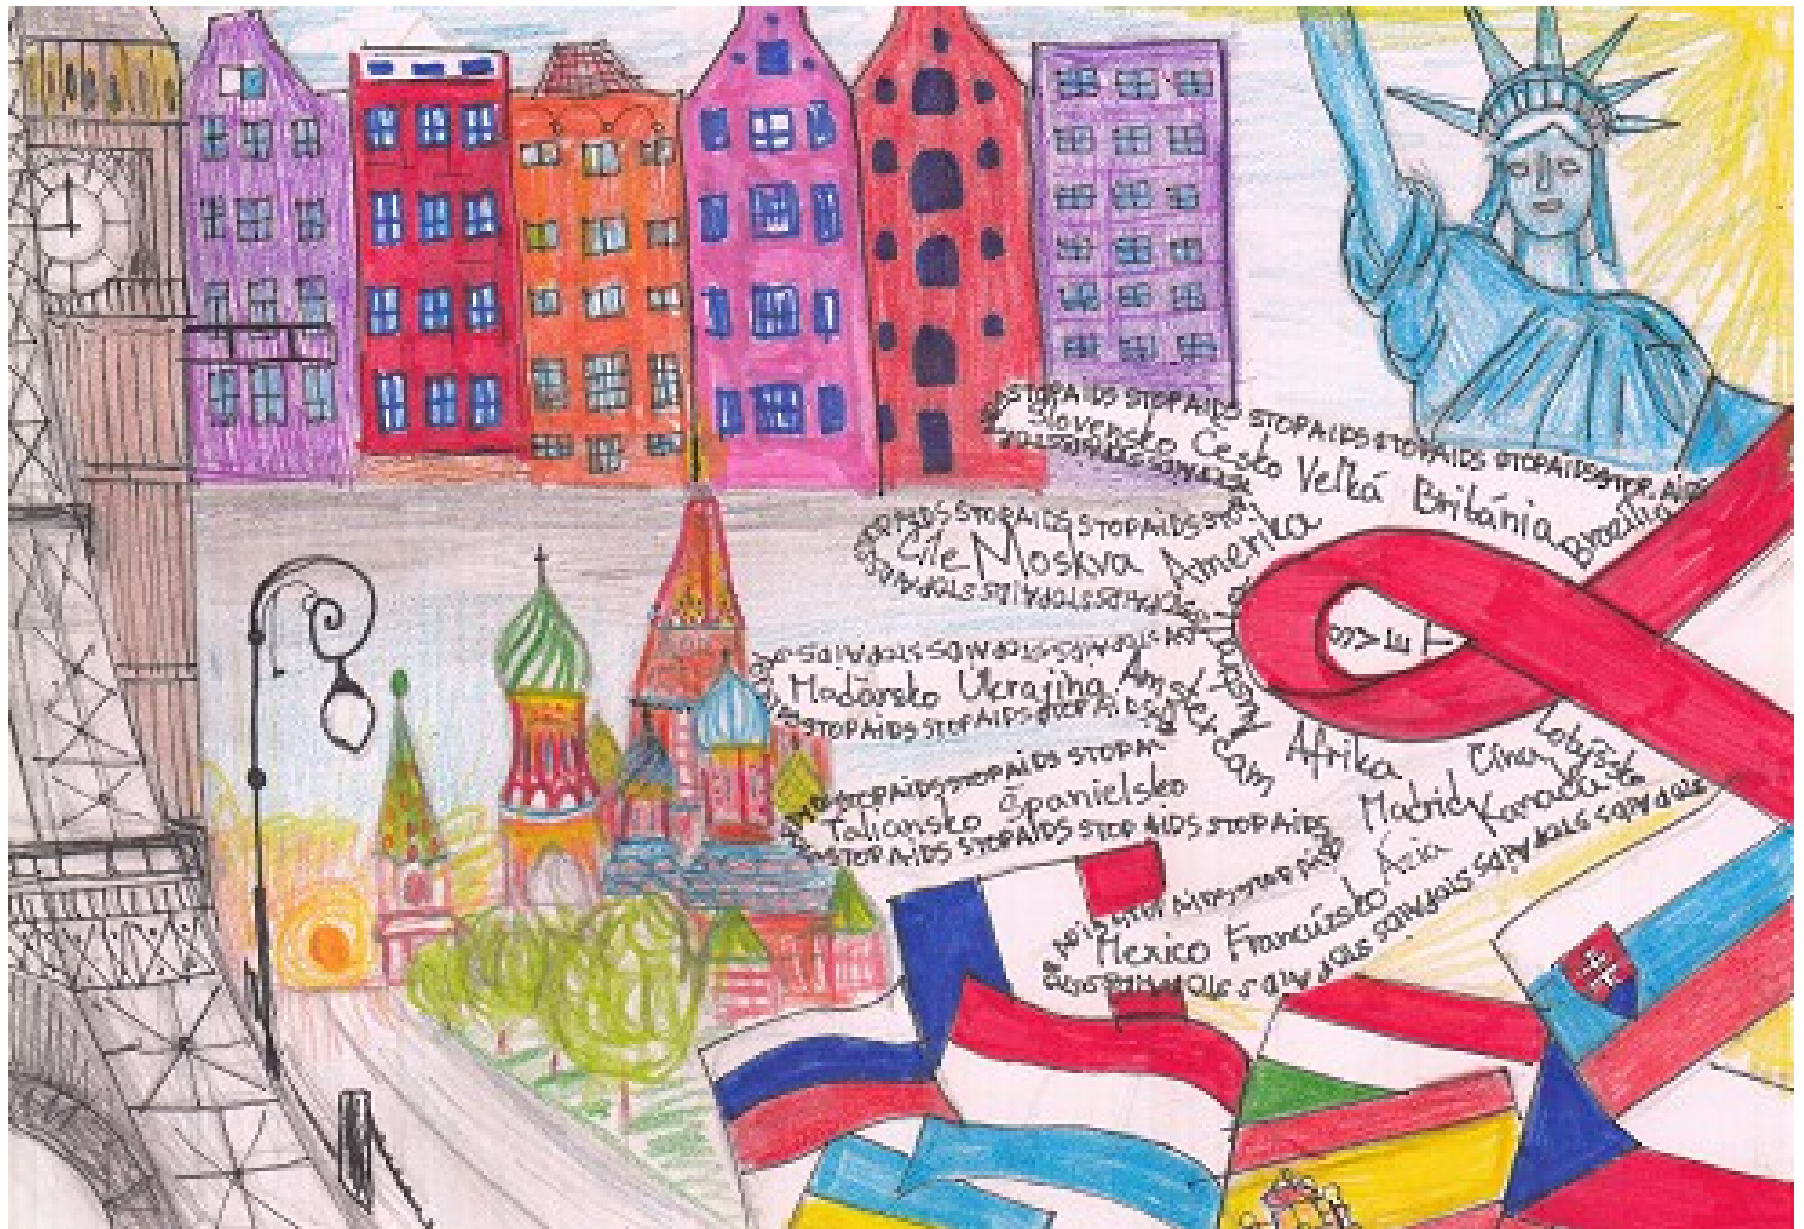 STOPAIDS STOPAIDS STOPAIDS STOPAIDS STOPAIDS STOP AIDS
Slovensko Česko Veľká Británia Brazília
STOPAIDS STOPAIDS STOPAIDS STO
Čile Moskva Amerika
STOPAIDS STOPAIDS STOPAIDS
STOPAIDS STOPAIDS STOPAIDS
Maďarsko Ukrajina Amsterdam
STOPAIDS STOPAIDS STOPAIDS
Afrika
Čína
Lotyšsko
STOPAIDS STOPAIDS STOPAI
Taliansko Španielsko
Madrid Kanada
STOPAIDS STOPAIDS STOP AIDS STOPAIDS
Mexico Francúzsko Ázia
STOPAIDS STOPAIDS STOPAIDS STOPAIDS